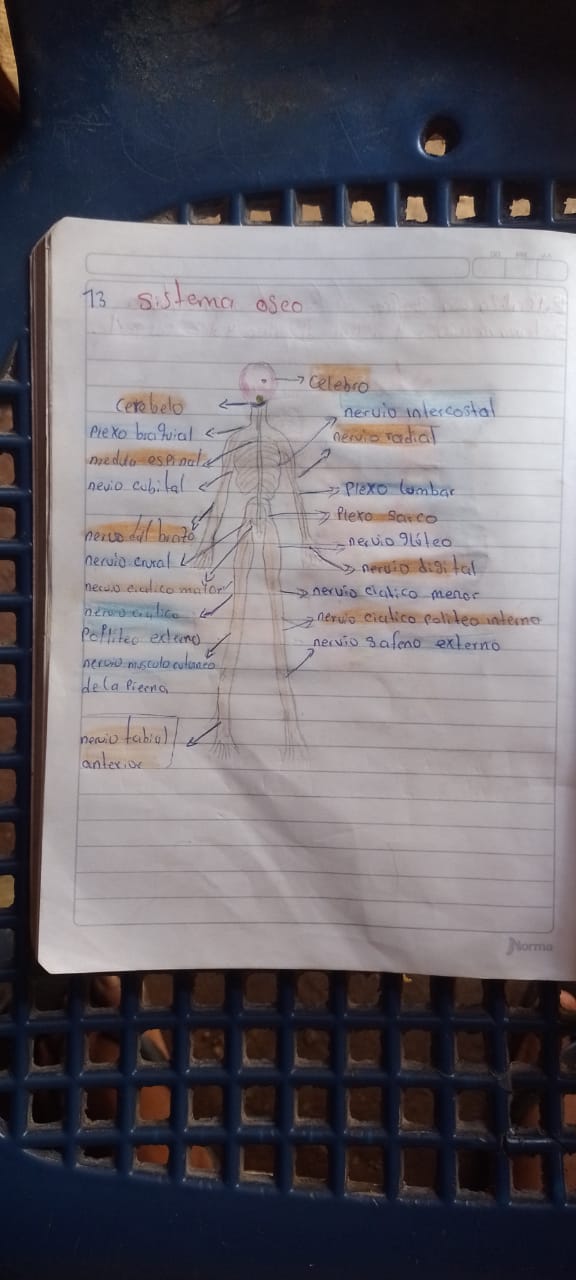 13 sistema oseo
celebro
cerebelo
nervio intercostal
Plexo braquial
nervio radial
medula espinal
nevio cubital
Plexo lumbar
Plexo sacro
nervio del brazo
nervio glúteo
nervio crural
nervio digital
nervio ciatico mator
nervio ciatico menor
nervio ciatico
nervio ciatico politeo interno
Polliteo externo
nervio safeno externo
nervio musculo cutaneo
de la Pierna
nervio tabial
anterior
Norma